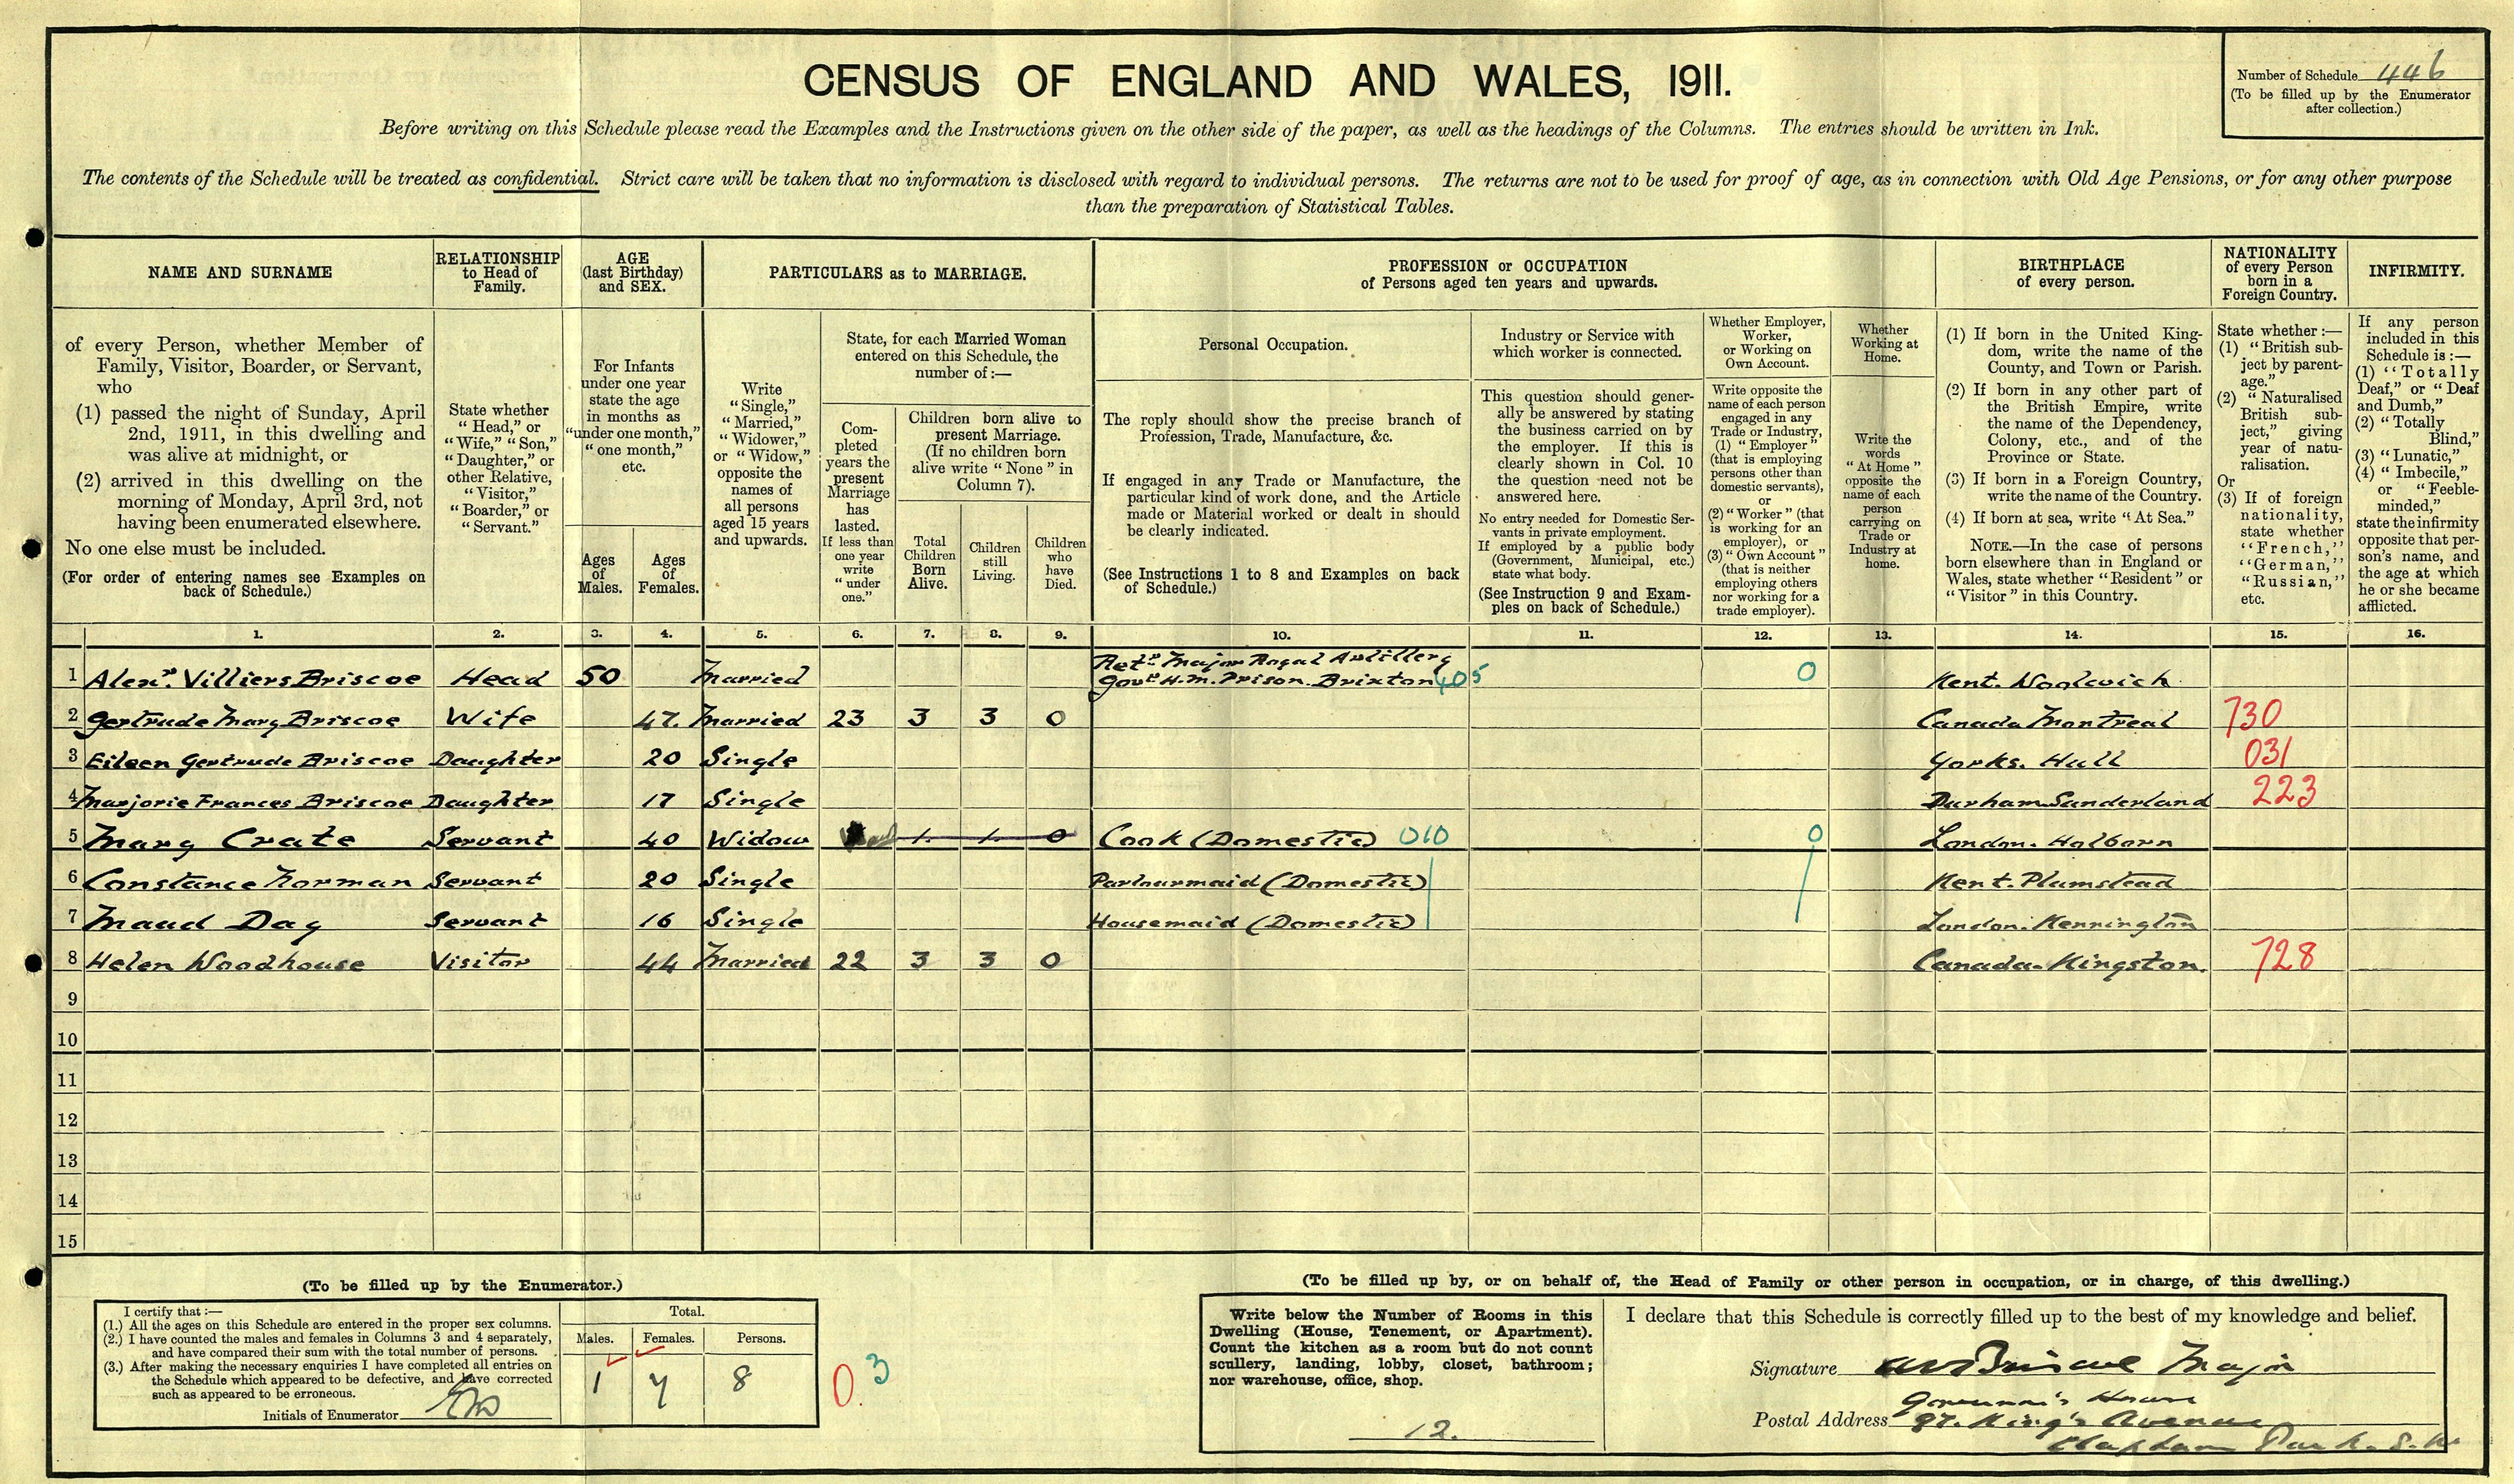 CENSUS OF ENGLAND AND WALES, 1911.
Number of Schedule 446
(To be filled up by the Enumerator
after collection.)
Before writing on this Schedule please read the Examples and the Instructions given on the other side of the paper, as well as the headings of the Columns. The entries should be written in Ink.
The contents of the Schedule will be treated as confidential. Strict care will be taken that no information is disclosed with regard to individual persons. The returns are not to be used for proof of age, as in connection with Old Age Pensions, or for any other purpose
than the preparation of Statistical Tables.
NAME AND SURNAME
of every Person, whether Member of
Family, Visitor, Boarder, or Servant,
who
(1) passed the night of Sunday, April
2nd, 1911, in this dwelling and
was alive at midnight, or
(2) arrived in this dwelling on the
morning of Monday, April 3rd, not
having been enumerated elsewhere.
No one else must be included.
(For order of entering names see Examples on
back of Schedule.)
RELATIONSHIP
to Head of
Family.
State whether
"Head," or
"Wife," "Son,"
"Daughter," or
other Relative,
"Visitor,"
"Boarder," or
"Servant."
AGE
(last Birthday)
and SEX.
For Infants
under one year
state the age
in months as
"under one month,"
"one month,"
etc.
Ages
of
Males.
Ages
of
Females.
PARTICULARS as to MARRIAGE.
Write
"Single,"
"Married,"
"Widower,"
or "Widow,"
opposite the
names of
all persons
aged 15 years
and upwards.
State, for each Married Woman
entered on this Schedule, the
number of:—
Com-
pleted
years the
present
Marriage
has
lasted.
If less than
one year
write
"under
one."
Children born alive to
present Marriage.
(If no children born
alive write "None" in
Column 7).
Total
Children
Born
Alive.
Children
still
Living.
Children
who
have
Died.
PROFESSION or OCCUPATION
of Persons aged ten years and upwards.
Personal Occupation.
The reply should show the precise branch of
Profession, Trade, Manufacture, &c.
If engaged in any Trade or Manufacture, the
particular kind of work done, and the Article
made or Material worked or dealt in should
be clearly indicated.
(See Instructions 1 to 8 and Examples on back
of Schedule.)
Industry or Service with
which worker is connected.
This question should gener-
ally be answered by stating
the business carried on by
the employer. If this is
clearly shown in Col. 10
the question need not be
answered here.
No entry needed for Domestic Ser-
vants in private employment.
If employed by a public body
(Government, Municipal, etc.)
state what body.
(See Instruction 9 and Exam-
ples on back of Schedule.)
Whether Employer,
Worker,
or Working on
Own Account.
Write opposite the
name of each person
engaged in any
Trade or Industry,
(1) "Employer"
(that is employing
persons other than
domestic servants),
or
(2) "Worker" (that
is working for an
employer), or
(3) "Own Account"
(that is neither
employing others
nor working for a
trade employer).
Whether
Working at
Home.
Write the
words
"At Home"
opposite the
name of each
person
carrying on
Trade or
Industry at
home.
BIRTHPLACE
of every person.
(1) If born in the United King-
dom, write the name of the
County, and Town or Parish.
(2) If born in any other part of
the British Empire, write
the name of the Dependency,
Colony, etc., and of the
Province or State.
(3) If born in a Foreign Country,
write the name of the Country.
(4) If born at sea, write "At Sea."
NOTE.—In the case of persons
born elsewhere than in England or
Wales, state whether "Resident" or
"Visitor" in this Country.
NATIONALITY
of every Person
born in a
Foreign Country.
State whether :—
(1) "British sub-
ject by parent-
age."
(2) "Naturalised
British sub-
ject," giving
year of natu-
ralisation.
Or
(3) If of foreign
nationality,
state whether
"French,"
"German,"
"Russian,"
etc.
INFIRMITY.
If any person
included in this
Schedule is :—
(1) "Totally
Deaf," or "Deaf
and Dumb,"
(2) "Totally
Blind,"
(3) "Lunatic,"
(4) "Imbecile,"
or "Feeble-
minded,"
state the infirmity
opposite that per-
son's name, and
the age at which
he or she became
afflicted.
1. 2. 3. 4. 5. 6. 7. 8. 9. 10. 11. 12. 13. 14. 15. 16.
1 Alexr. Villiers Briscoe Head 50 Married Retd Major Royal Artillery
Govr H.M. Prison. Brixton 405 0 Kent. Woolwich
2 Gertrude Mary Briscoe Wife 47. Married 23 3 3 0 Canada Montreal 730
3 Eileen Gertrude Briscoe Daughter 20 Single Yorks. Hull 031
4 Marjorie Frances Briscoe Daughter 17 Single Durham Sunderland 223
5 Mary Crate Servant 40 Widow 1 1 0 Cook (Domestic) 010 0 London. Holborn
6 Constance Norman Servant 20 Single Parlourmaid (Domestic) Kent. Plumstead
7 Maud Day Servant 16 Single Housemaid (Domestic) London. Kennington
8 Helen Woodhouse Visitor 44 Married 22 3 3 0 Canada. Kingston. 728
9
10
11
12
13
14
15
(To be filled up by the Enumerator.)
I certify that :—
(1.) All the ages on this Schedule are entered in the proper sex columns.
(2.) I have counted the males and females in Columns 3 and 4 separately,
and have compared their sum with the total number of persons.
(3.) After making the necessary enquiries I have completed all entries on
the Schedule which appeared to be defective, and have corrected
such as appeared to be erroneous.
Initials of Enumerator
Total.
Males. Females. Persons.
1 7 8
0. 3
(To be filled up by, or on behalf of, the Head of Family or other person in occupation, or in charge, of this dwelling.)
Write below the Number of Rooms in this
Dwelling (House, Tenement, or Apartment).
Count the kitchen as a room but do not count
scullery, landing, lobby, closet, bathroom;
nor warehouse, office, shop.
12.
I declare that this Schedule is correctly filled up to the best of my knowledge and belief.
Signature AV Briscoe Major
Governor's House
Postal Address 97. King's Avenue
Clapham Park. S.W.